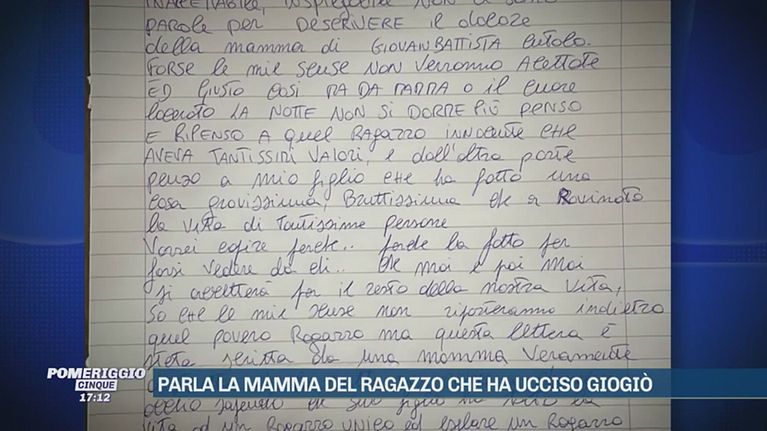 PAROLE per DESCRIVERE il dolore
della mamma di GIOVANBATTISTA Cutolo.
FORSE le mie scuse NON verranno Accettate
ED GIUSTO così MA DA MAMMA o il cuore
lacerato LA NOTTE NON SI DORME PIÙ PENSO
E RIPENSO A quel RAgAZZO INNOCENTE CHE
AVEVA TANTISSIMI VALORI, e dall'altra parte
penso a mio figlio CHE ha fatto una
cosa gravissima, Bruttissima che a Rovinato
la vita di Tantissime persone
Vorrei capire perchè.. perchè la fatto per
farsi vedere da chi.. Che mai e poi mai
si accetterà per il resto della nostra Vita,
so che le mie scuse non riporteranno indietro
quel povero Ragazzo ma questa lettera è
stata scritta da una mamma Veramente
vita ad un RAgAZZO UNICO ed un RAgAZZO
POMERIGGIO
CINQUE
17:12
PARLA LA MAMMA DEL RAGAZZO CHE HA UCCISO GIOGIÒ